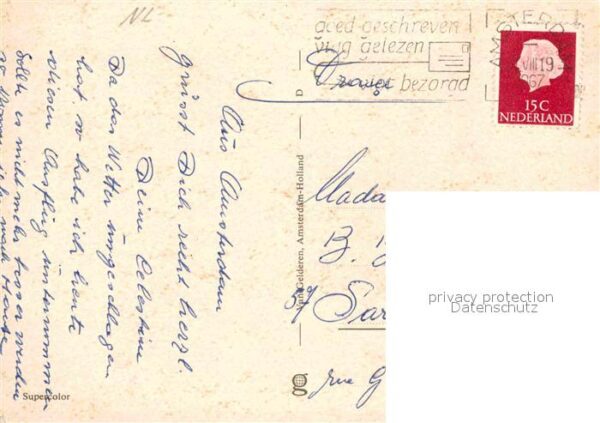 NL
goed geschreven
vlug gelezen
bezorgd
AMSTERD
VIII 19
967
15 C
NEDERLAND
Aus Amsterdam
grüsst Dich recht herzl.
Deine Celestine
Da das Wetter umgeschlagen
hat so habe ich heute
diesen Ausflug unternommen
Sollte es nicht mehr besser werden
so
ich nach Hause
D
Van Gelderen, Amsterdam-Holland
Mada
B.
57 Sar
rue G
Supercolor
privacy protection
Datenschutz